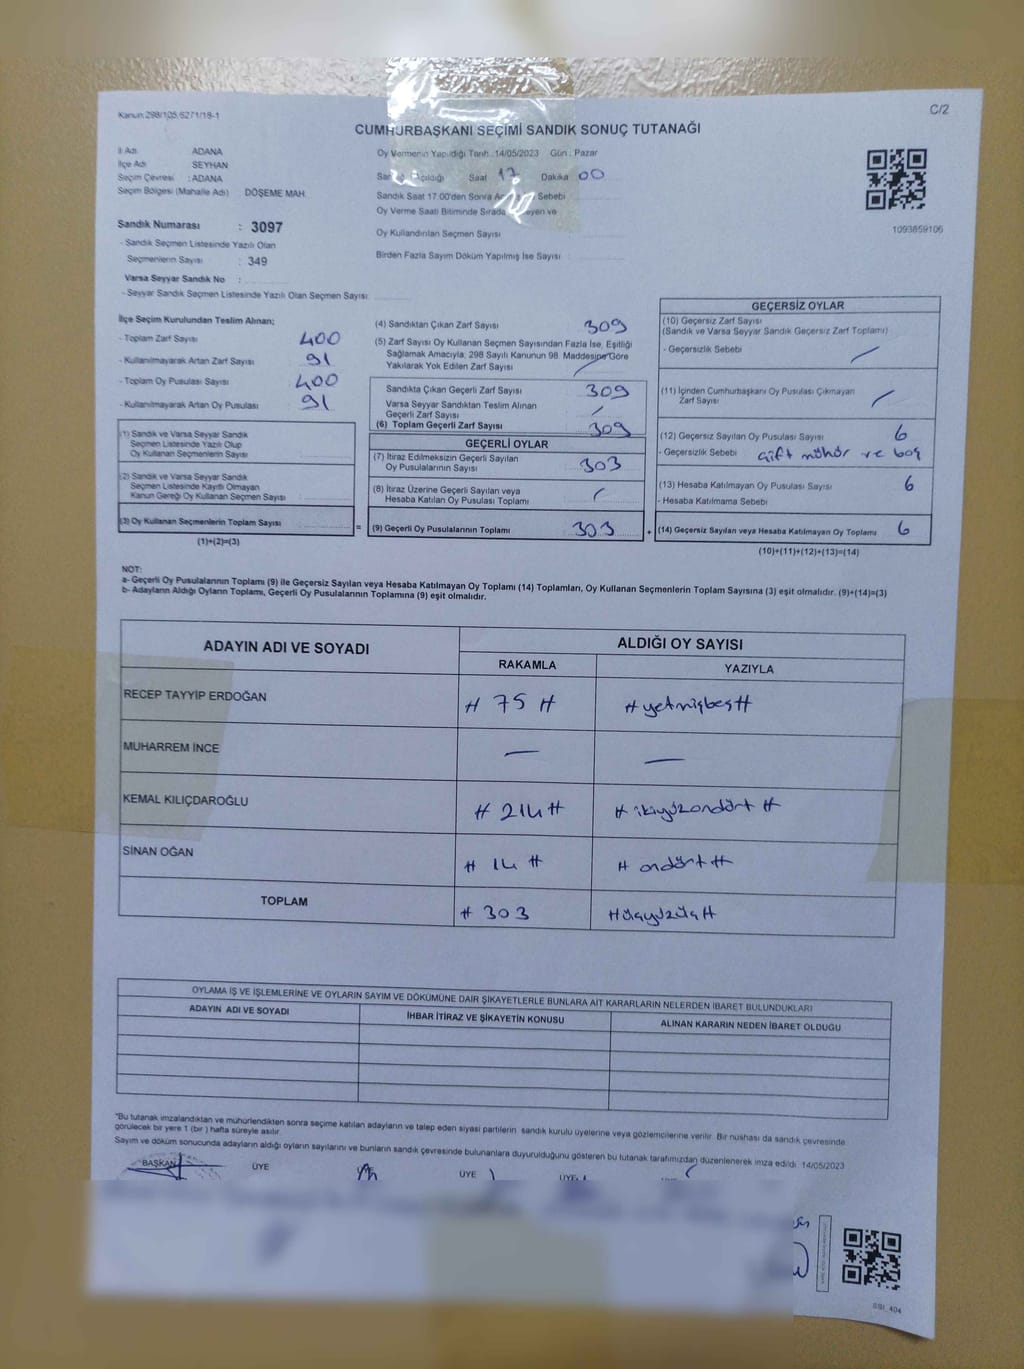 Kanun:298/105,6271/18-1
C/2
CUMHURBAŞKANI SEÇİMİ SANDIK SONUÇ TUTANAĞI
İl Adı : ADANA
İlçe Adı : SEYHAN
Seçim Çevresi : ADANA
Seçim Bölgesi (Mahalle Adı) : DÖŞEME MAH.
Oy Vermenin Yapıldığı Tarih :14/05/2023 Gün : Pazar
Saat 17 Dakika 00
Sandık Saat 17:00'den Sonra Sebebi
Oy Verme Saati Bitiminde Sırada ve
Oy Kullandırılan Seçmen Sayısı
Birden Fazla Sayım Döküm Yapılmış İse Sayısı :
1093859106
Sandık Numarası : 3097
- Sandık Seçmen Listesinde Yazılı Olan
Seçmenlerin Sayısı : 349
Varsa Seyyar Sandık No :
- Seyyar Sandık Seçmen Listesinde Yazılı Olan Seçmen Sayısı:
İlçe Seçim Kurulundan Teslim Alınan;
- Toplam Zarf Sayısı : 400
- Kullanılmayarak Artan Zarf Sayısı : 91
- Toplam Oy Pusulası Sayısı : 400
- Kullanılmayarak Artan Oy Pusulası : 91
(1) Sandık ve Varsa Seyyar Sandık
Seçmen Listesinde Yazılı Olup
Oy Kullanan Seçmenlerin Sayısı :
(2) Sandık ve Varsa Seyyar Sandık
Seçmen Listesinde Kayıtlı Olmayan
Kanun Gereği Oy Kullanan Seçmen Sayısı :
(3) Oy Kullanan Seçmenlerin Toplam Sayısı :
(1)+(2)=(3)
(4) Sandıktan Çıkan Zarf Sayısı : 309
(5) Zarf Sayısı Oy Kullanan Seçmen Sayısından Fazla İse, Eşitliği
Sağlamak Amacıyla, 298 Sayılı Kanunun 98. Maddesine Göre
Yakılarak Yok Edilen Zarf Sayısı :
Sandıkta Çıkan Geçerli Zarf Sayısı : 309
Varsa Seyyar Sandıktan Teslim Alınan
Geçerli Zarf Sayısı :
(6) Toplam Geçerli Zarf Sayısı : 309
GEÇERLİ OYLAR
(7) İtiraz Edilmeksizin Geçerli Sayılan
Oy Pusulalarının Sayısı : 303
(8) İtiraz Üzerine Geçerli Sayılan veya
Hesaba Katılan Oy Pusulası Toplamı :
= (9) Geçerli Oy Pusulalarının Toplamı : 303
GEÇERSİZ OYLAR
(10) Geçersiz Zarf Sayısı
(Sandık ve Varsa Seyyar Sandık Geçersiz Zarf Toplamı) :
- Geçersizlik Sebebi :
(11) İçinden Cumhurbaşkanı Oy Pusulası Çıkmayan
Zarf Sayısı :
(12) Geçersiz Sayılan Oy Pusulası Sayısı : 6
- Geçersizlik Sebebi : Çift mühür ve boş
(13) Hesaba Katılmayan Oy Pusulası Sayısı : 6
- Hesaba Katılmama Sebebi :
+ (14) Geçersiz Sayılan veya Hesaba Katılmayan Oy Toplamı : 6
(10)+(11)+(12)+(13)=(14)
NOT:
a- Geçerli Oy Pusulalarının Toplamı (9) ile Geçersiz Sayılan veya Hesaba Katılmayan Oy Toplamı (14) Toplamları, Oy Kullanan Seçmenlerin Toplam Sayısına (3) eşit olmalıdır. (9)+(14)=(3)
b- Adayların Aldığı Oyların Toplamı, Geçerli Oy Pusulalarının Toplamına (9) eşit olmalıdır.
ADAYIN ADI VE SOYADI
ALDIĞI OY SAYISI
RAKAMLA YAZIYLA
RECEP TAYYİP ERDOĞAN # 75 # # yetmişbeş #
MUHARREM İNCE — —
KEMAL KILIÇDAROĞLU # 214 # # ikiyüzondört #
SİNAN OĞAN # 14 # # ondört #
TOPLAM # 303 # üçyüzüç #
OYLAMA İŞ VE İŞLEMLERİNE VE OYLARIN SAYIM VE DÖKÜMÜNE DAİR ŞİKAYETLERLE BUNLARA AİT KARARLARIN NELERDEN İBARET BULUNDUKLARI
ADAYIN ADI VE SOYADI İHBAR İTİRAZ VE ŞİKAYETİN KONUSU ALINAN KARARIN NEDEN İBARET OLDUĞU
*Bu tutanak imzalandıktan ve mühürlendikten sonra seçime katılan adayların ve talep eden siyasi partilerin sandık kurulu üyelerine veya gözlemcilerine verilir. Bir nushası da sandık çevresinde
görülecek bir yere 1 (bir ) hafta süreyle asılır.
Sayım ve döküm sonucunda adayların aldığı oyların sayılarını ve bunların sandık çevresinde bulunanlara duyurulduğunu gösteren bu tutanak tarafımızdan düzenlenerek imza edildi. 14/05/2023
BAŞKAN ÜYE ÜYE ÜYE
SSI_404